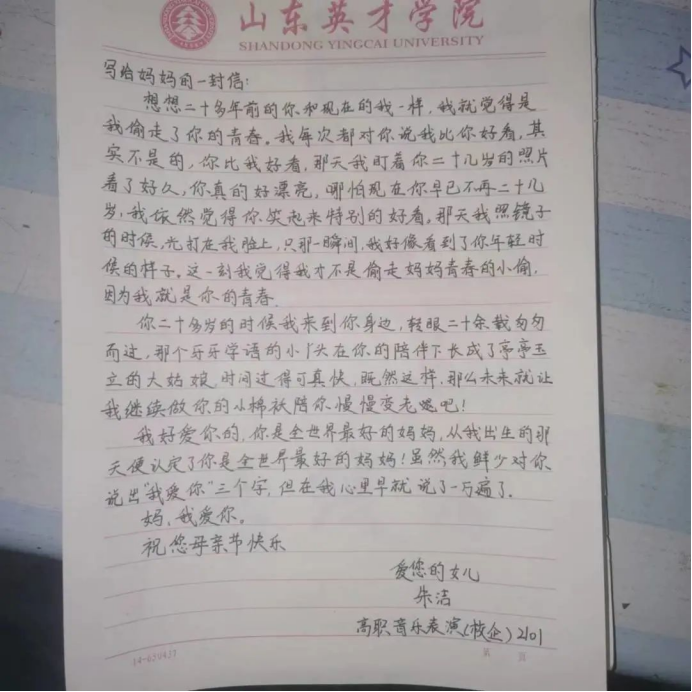 山东英才学院
SHANDONG YINGCAI UNIVERSITY
写给妈妈的一封信:
想想二十多年前的你和现在的我一样，我就觉得是
我偷走了你的青春。我每次都对你说我比你好看，其
实不是的，你比我好看，那天我盯着你二十几岁的照片
看了好久，你真的好漂亮，哪怕现在你早已不再二十几
岁，我依然觉得你笑起来特别的好看。那天我照镜子
的时候，光打在我脸上，只那一瞬间，我好像看到了你年轻时
候的样子。这一刻我觉得我才不是偷走妈妈青春的小偷，
因为我就是你的青春.
你二十多岁的时候我来到你身边，转眼二十余载匆匆
而过，那个牙牙学语的小丫头在你的陪伴下长成了亭亭玉
立的大姑娘，时间过得可真快，既然这样，那么未来就让
我继续做你的小棉袄陪你慢慢变老吧！
我好爱你的，你是全世界最好的妈妈，从我出生的那
天便认定了你是全世界最好的妈妈！虽然我鲜少对你
说出"我爱你"三个字，但在我心里早就说了一万遍了.
妈，我爱你。
祝您母亲节快乐
爱您的女儿
朱洁
高职音乐表演(校企)2101
第 页